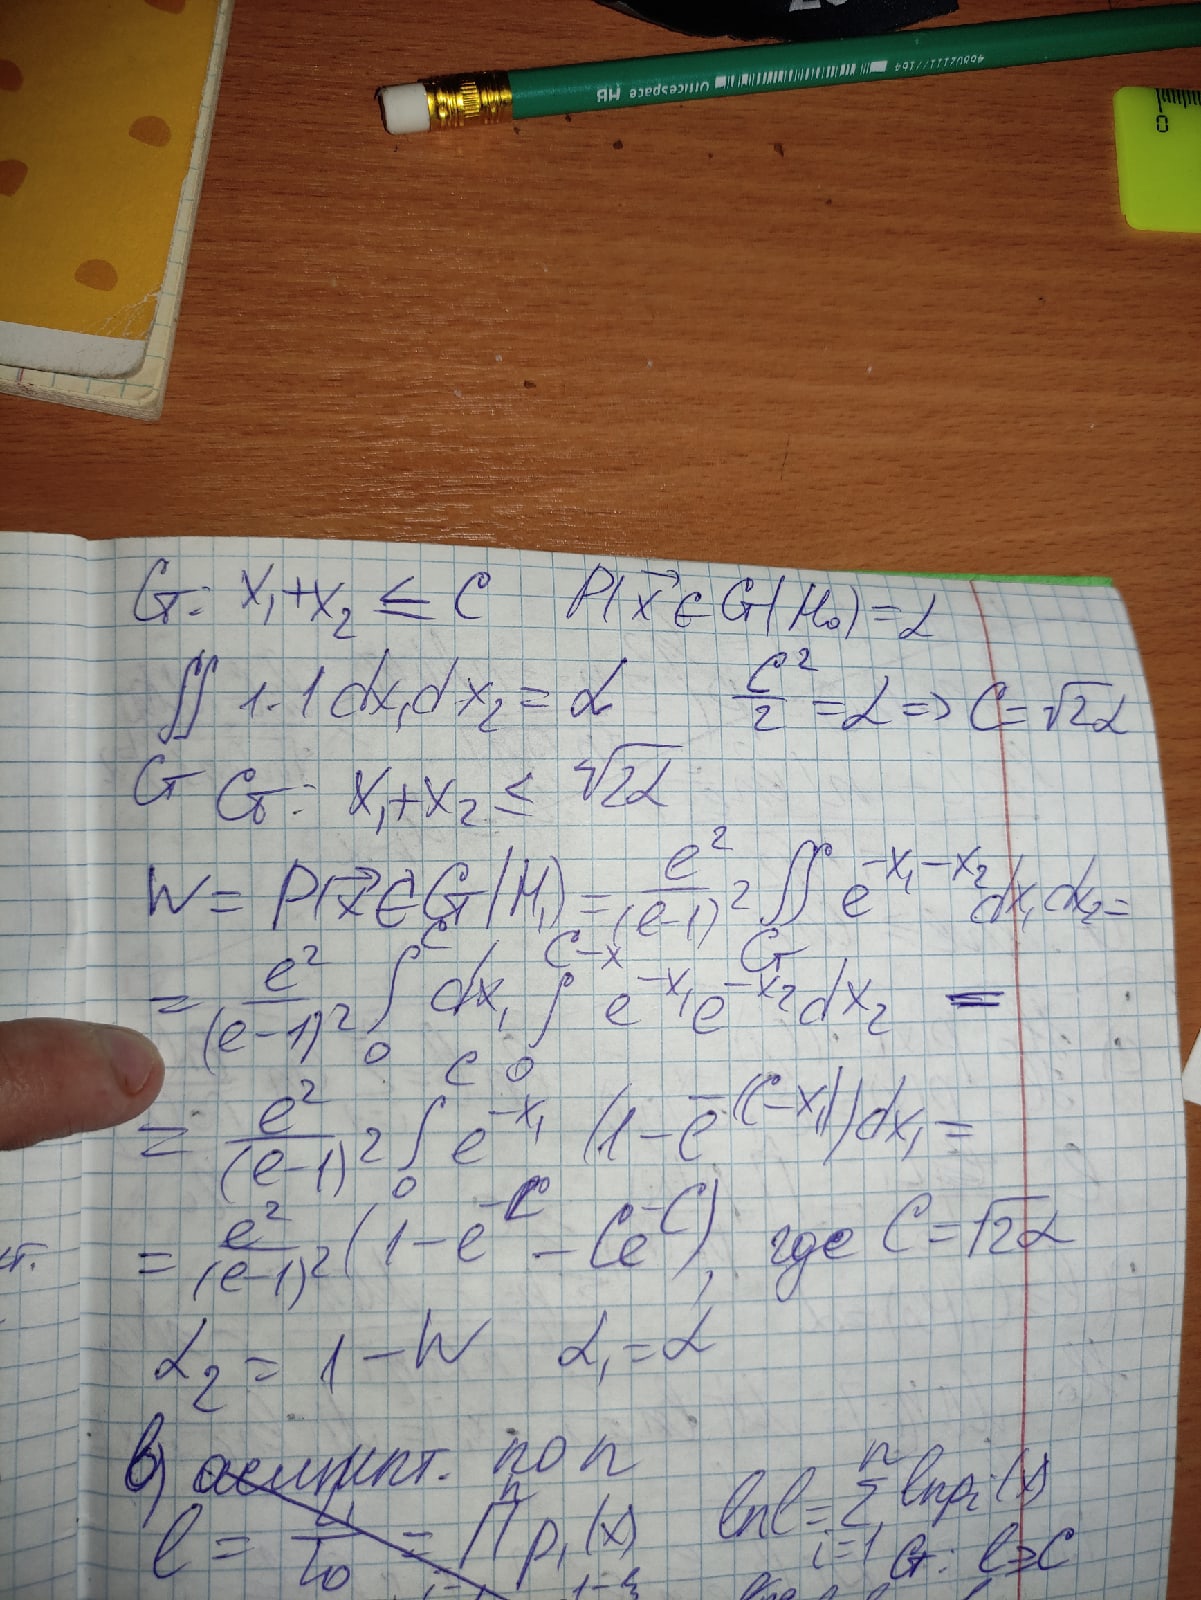 Officespace HB 4680211177164
0
G: x₁+x₂ ≤ C P(x⃗ ∈ G | H₀) = α
∬ 1·1 dx₁dx₂ = α C²/2 = α => C = √2α
G G: x₁+x₂ ≤ √2α
W = P(x⃗ ∈ G | H₁) = e²/(e-1)² ∬ e^(-x₁-x₂) dx₁ dx₂ =
G
= e²/(e-1)² ∫₀^C dx₁ ∫₀^(C-x) e^(-x₁) e^(-x₂) dx₂ =
= e²/(e-1)² ∫₀^C e^(-x₁) (1-e^(-(C-x₁))) dx₁ =
= e²/(e-1)² (1-e^(-C) - Ce^(-C)), где C = √2α
α₂ = 1-W α₁ = α
в) асимпт. по n
l = L₁/L₀ = ∏ p₁(x) ln l = Σ_(i=1)^n ln pᵢ(x)
G: l ≥ C